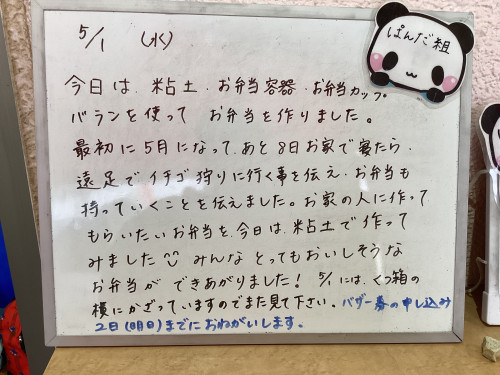 5/1 (水)
ぱんだ組
今日は、粘土・お弁当容器・お弁当カップ、
バランを使って お弁当を作りました。
最初に5月になって、あと8日お家で寝たら、
遠足でイチゴ狩りに行く事を伝え、お弁当も
持っていくことを伝えました。お家の人に作って
もらいたいお弁当を、今日は、粘土で作って
みました みんなとってもおいしそうな
お弁当が できあがりました! 5/1には、くつ箱の
横にかざっていますのでまた見て下さい。バザー券の申し込み
2日(明日)までにおねがいします。